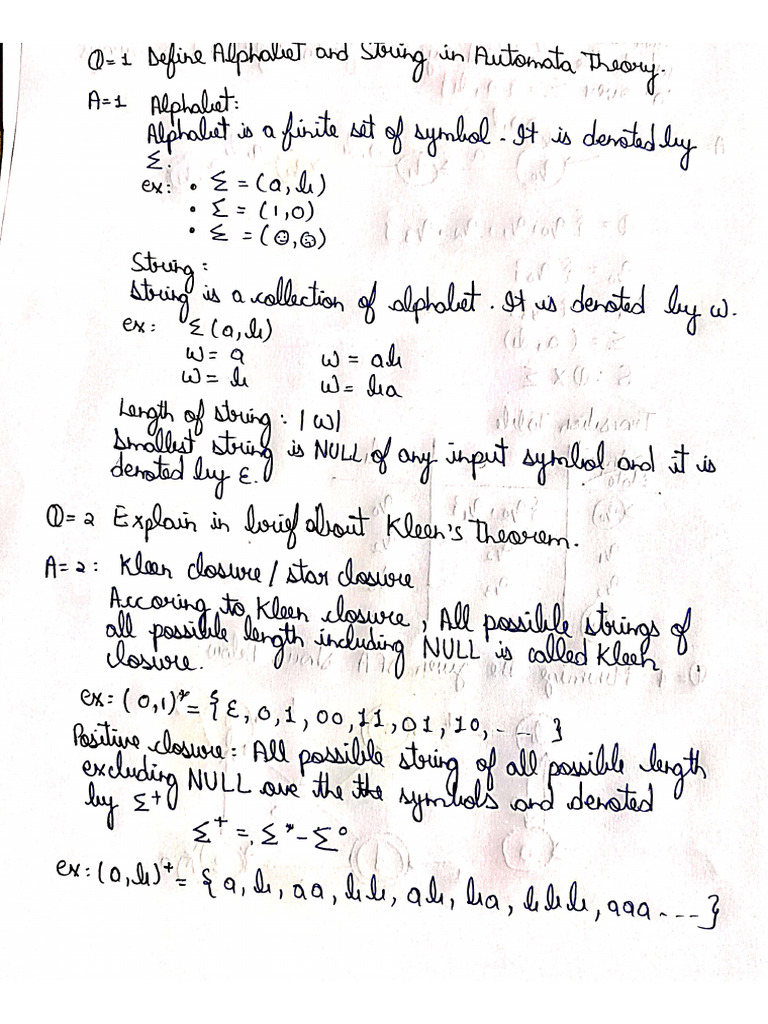 Q=1 Define Alphabet and String in Automata Theory.
A=1 Alphabet:
Alphabet is a finite set of symbol. It is denoted by
Σ.
ex: • Σ = (a, b)
• Σ = (1,0)
• Σ = (☺,☹)
String:
String is a collection of alphabet. It is denoted by ω.
ex: Σ(a,b)
ω = a ω = ab
ω = b ω = ba
Length of string: |ω|
Smallest string is NULL of any input symbol and it is
denoted by ε.
Q=2 Explain in brief about Kleen's Theorem.
A=2: Kleen closure / star closure
Accoring to Kleen closure, All possible strings of
all possible length including NULL is called Kleen
closure.
ex: (0,1)* = {ε, 0, 1, 00, 11, 01, 10, - - - }
Positive closure: All possible string of all possible length
excluding NULL ove the the symbols and denoted
by Σ+
Σ+ = Σ* - Σ°
ex: (a,b)+ = {a, b, aa, bb, ab, ba, bbb, aaa ---- }